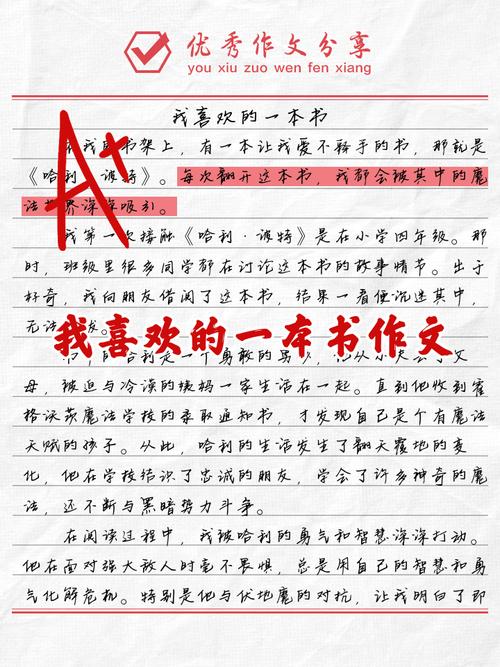 优秀作文分享
you xiu zuo wen fen xiang
我喜欢的一本书
A+
在我的书架上，有一本让我爱不释手的书，那就是
《哈利·波特》。每次翻开这本书，我都会被其中的魔
法世界深深吸引。
我第一次接触《哈利·波特》是在小学四年级。那
时，班级里很多同学都在讨论这本书的故事情节。出于
好奇，我向朋友借阅了这本书，结果一看便沉迷其中，
无法
我喜欢的一本书作文
的哈利是一个勇敢的男
母，被迫与冷漠的姨妈一家生活在一起。直到他收到霍
格沃茨魔法学校的录取通知书，才发现自己是个有魔法
天赋的孩子。从此，哈利的生活发生了翻天覆地的变
化，他在学校结识了忠诚的朋友，学会了许多神奇的魔
法，还不断与黑暗势力斗争。
在阅读过程中，我被哈利的勇气和智慧深深打动。
他在面对强大敌人时毫不畏惧，总是用自己的智慧和勇
气化解危机。特别是他与伏地魔的对抗，让我明白了即